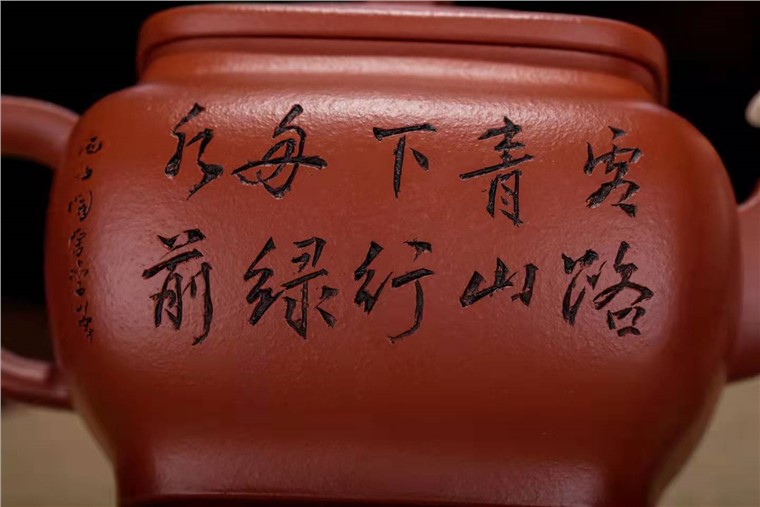 客路
青山
下行
舟绿
水前